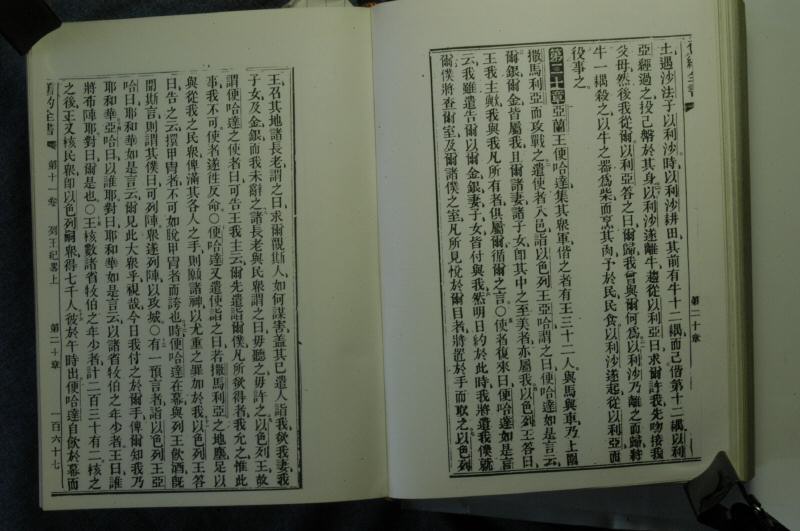 舊約全書
第二十章
土遇沙法子以利沙時以利沙耕田其前有牛十二耦而己偕第十二耦以利
亞經過之投己褂於其身以利沙遂離牛趨從以利亞曰求爾許我先吻接我
父母然後我從爾以利亞答之曰爾歸我曾與爾何為以利沙乃離之而歸
牛一耦殺之以牛之器為柴而烹其肉予於民民食以利沙遂起從以利亞而
役事之
第二十章亞蘭王便哈達集其眾軍偕之者有王三十二人與馬與車乃上圍
撒馬利亞而攻戰之遣使者入邑詣以色列王亞哈謂之曰便哈達如是言云
爾銀爾金皆屬我且爾諸妻諸子女即其中之至美者亦屬我以色列王答曰
王我主歟我與我凡所有者俱屬爾循爾之言〇使者復來曰便哈達如是言
云我雖遣告爾以爾金銀妻子女皆付與我然明日約於此時我將遣我僕就
爾僕將查爾室及爾諸僕之室凡所見悅於爾目者將置於手而取之以色列
王召其地諸長老謂之曰求爾觀斯人如何謀害蓋其已遣人詣我欲我妻我
子女及金銀而我未辭之諸長老與民眾謂之曰毋聽之毋許之以色列王故
謂便哈達之使者曰可告王我主云爾先遣詣爾僕凡所欲得者我允之惟此
事我不可使者遂往反命〇便哈達又遣使詣之曰若撒馬利亞之地塵足以
與從我之民眾俾滿其各人之手則願諸神以尤重之罪加於我以色列王答
曰告之云擐甲胄者不可如脫甲胄者而誇也時便哈達在幕與列王飲酒既
聞斯言則謂其僕曰可列陣眾遂列陣以攻城〇有一預言者詣以色列王亞
哈曰耶和華如是言云爾見此大眾乎視哉今日我付之於爾手俾爾知我乃
耶和華亞哈曰以誰耶對曰耶和華如是言云以諸省牧伯之年少者王曰誰
將布陣耶對曰爾是也〇王核數諸省牧伯之年少者計二百三十有二核之
之後王又核民眾即以色列嗣眾得七千人彼於午時出便哈達自飲於幕而
舊約全書 第十一卷 列王紀畧上 第二十章 一百六十七